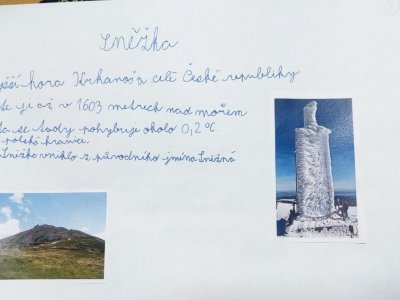 Sněžka
hora Krkonoš a celé České republiky
ji až v 1603 metrech nad mořem
se tady pohybuje okolo 0,2 °C.
polská hranice.
Sněžka vzniklo z původního jména Sněžná